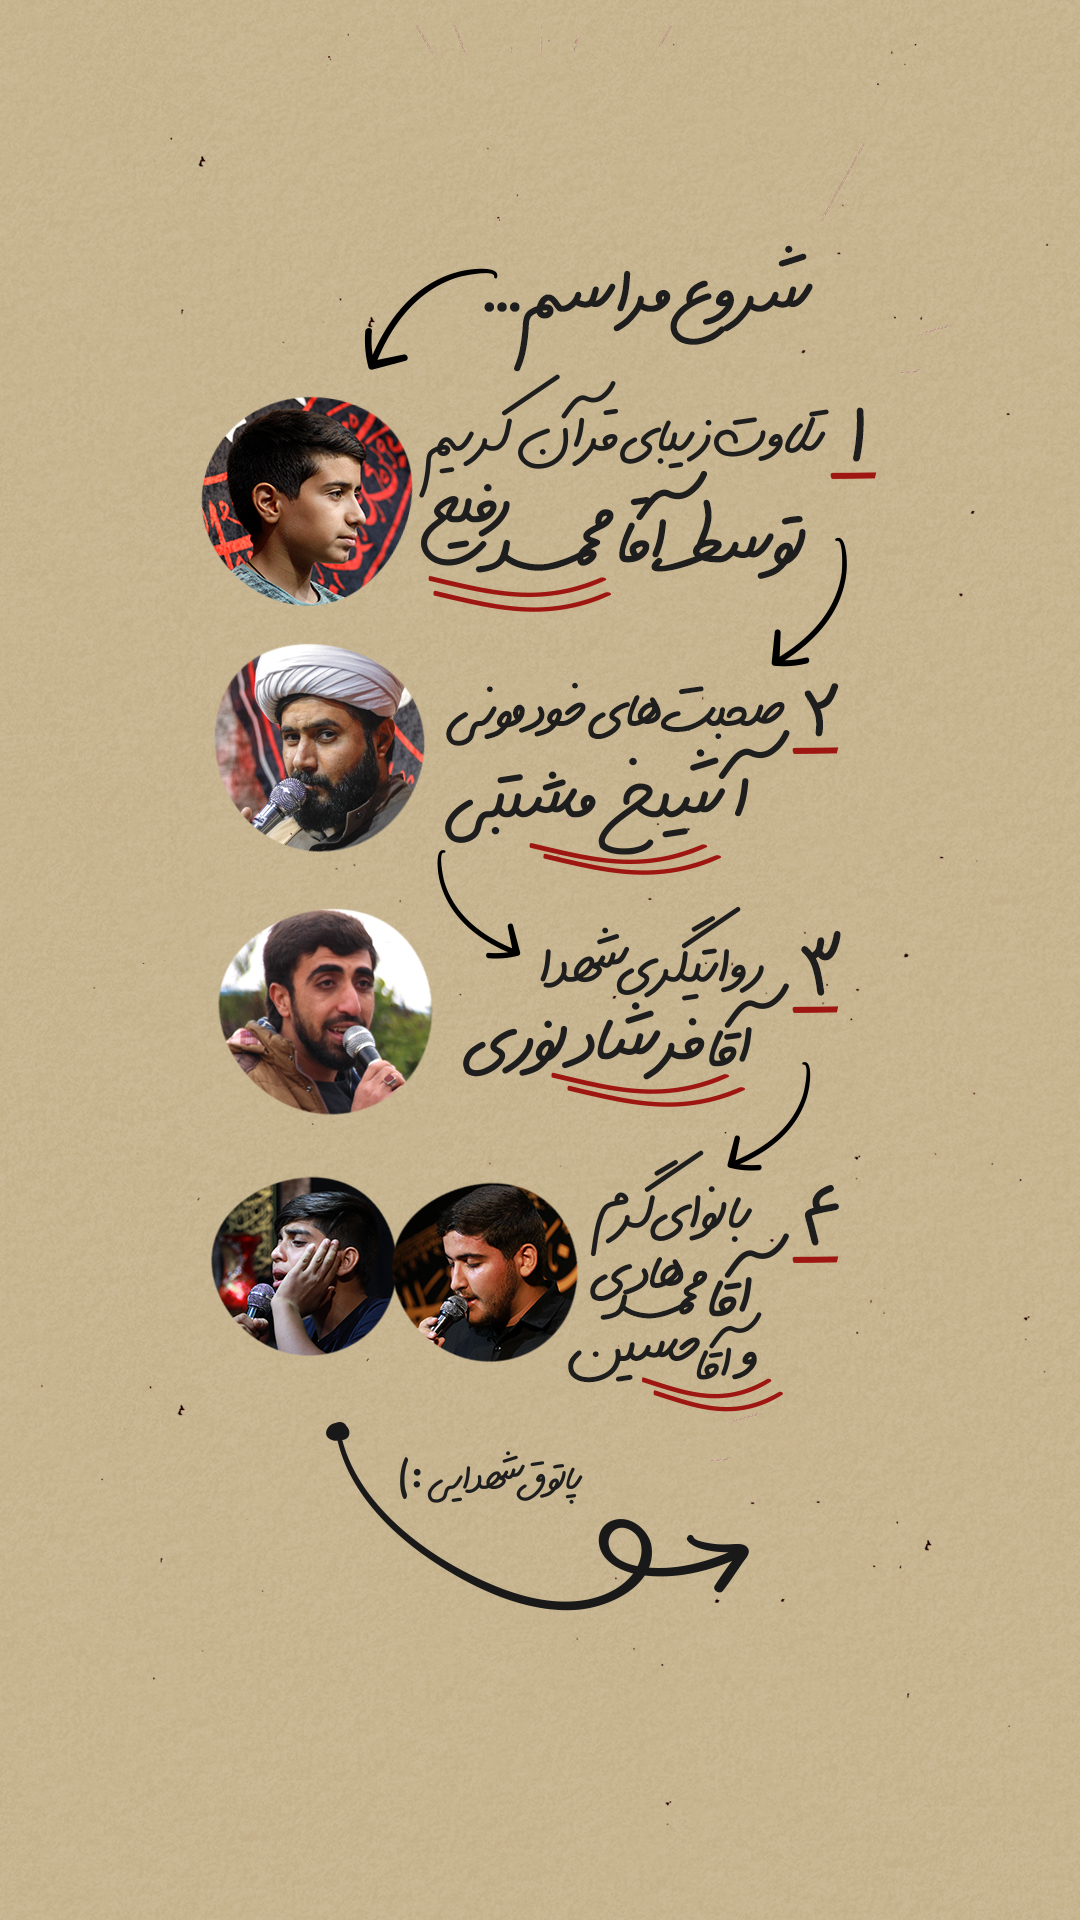 شروع مراسم...
۱ تلاوت زیبای قرآن کریم
توسط آقا محمد رفیع
۲ صحبت های خودمونی
آشیخ مشتبی
۳ رواتیگری شهدا
آقا فرشاد نوری
۴ بانوای گرم
آقا محمدهادی
و آقا حسین
پاتوق شهدایی :)